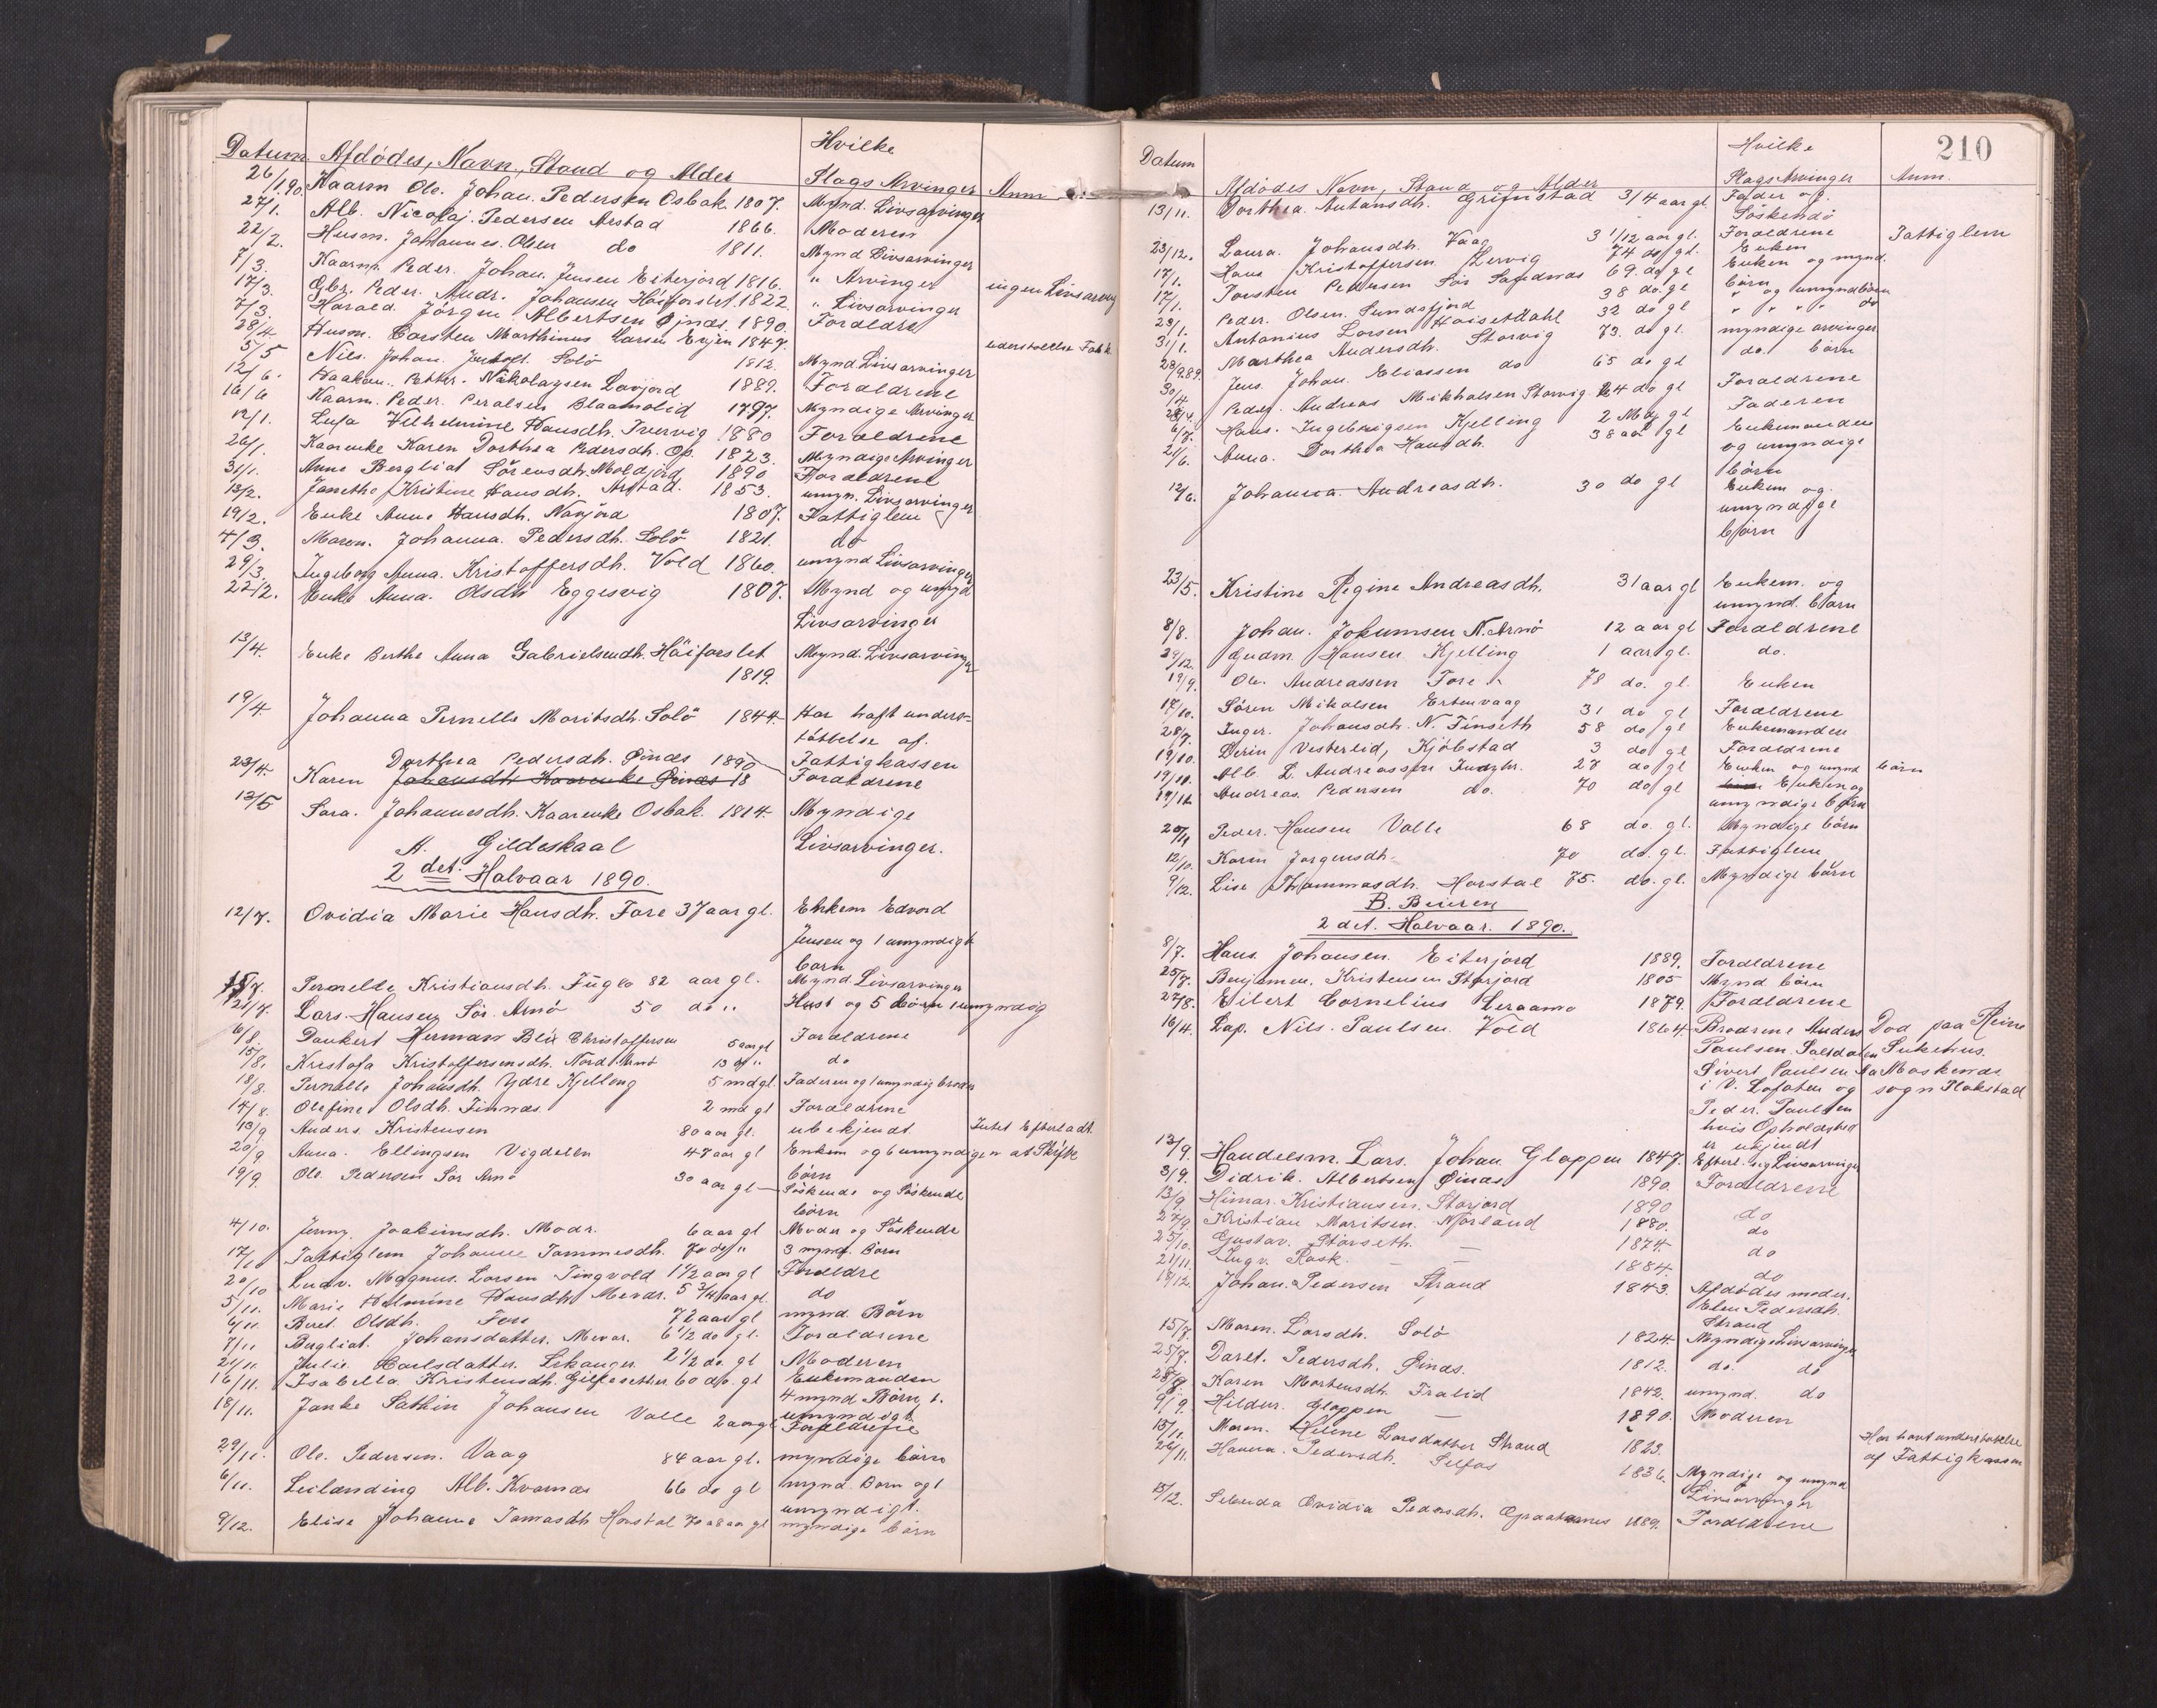 Datum Afdödes, Navn, Stand og Alder Hvilke Slags Arvinger Anm.
26/1.90. Kaarm Ole. Johan. Pedersen Osbak. 1807. Mynd. Livsarvinger
27/1. Alb. Nicolaj. Pedersen Arstad 1866. Moderen
22/2. Husm. Johannes. Olsen do 1811. Mynd Livsarvinger
7/3. Kaarm. Peder. Johan. Jensen Eiterjord 1816. " Arvinger ingen Livsarvg
17/3. Gbr. Peder. Andr. Johansen Höiforslet. 1822. " Livsarvinger
7/3. Harald. Jörgen Albertsen Öjnæs. 1890. Foreldre
28/4 Husm. Carsten Marthinus Larsen Evjen 1847. understöttelse Fattk
5/5 Nils. Johan. Solö 1812. Mynd Livsarvinger
12/6. Haakon. Petter. Nikolaysen Lavjord 1889. Foreldrene
16/6 Kaarm. Peder. Blaamolid 1797. Myndige Arvinger
12/1. Luisa Vilhelmine Hansdh. Tvervig 1880 Foreldrene
26/1. Kaarenke Karen Dorthea Pedersdh. Os. 1823. Myndige Arvinger
31/1. Anne Bergliot Sörensdh. Moldjord 1890 Foreldrene
13/2. Janethe Kristine Hansdh. Arstad. 1853. umyn. Livsarvinger
19/2. Enke Anne Hansdh. Navjord 1807. Fattiglem
4/3. Maren. Johanna. Pedersdh. Solö 1821. do
29/3. Ingeborg Anna. Kristoffersdh. Vold 1860. umynd Livsarvinger
22/2. Enke Anna. Olsdh Eggesvig 1807. Mynd og umyd
Livsarvinger
13/4. Enke Berthe Anna Gabrielsendh. Höiforslet Mynd. Livsarvinger
1819.
19/4. Johanna Pernelle Moritsdh. Solö 1844. Har haft unders-
töttelse af.
Fattigkassen
Dorthea Pedersdh. Öinæs 1890
23/4. Karen Johansdh Kaarenke Öinæs 18 Foreldrene
12/5 Sara. Johannesdh. Kaarenke Osbak. 1814. Myndige
Livsarvinger.
A. Gildeskaal
2 det. Halvaar 1890.
12/7. Ovidia Marie Hansdh. Fore 37 aar gl. Enkem Edvard
Jensen og 1 umyndigt
barn
15/7. Pernelle Kristiansdh. Fuglö 82 aar gl. Mynd. Livsarvinger
21/7. Lars. Hansen Sör. Arnö 50 do " Hust og 5 börn 1 umyndig
6/8. Dankert Herman Blix Christoffersen 5 aar gl Foreldrene
15/8. Kristofa Kristoffersensdh. Nord Arnö 13 do " do
18/8. Pernelle Johansdh. Ydre Kjelling 5 md gl. Faderen og 1 umyndig broder
14/8. Olefine Olsdh. Finnæs. 2 md gl Foreldrene
13/9 Anders. Kristensen 80 aar gl. ubekjendt Intet Efterladt
20/9 Anna. Ellingsen Vigdelen 47 aar gl Enkem og 6 umyndige n at Skifte
börn
19/9. Ole. Pedersen Sör Arnö 30 aar gl Söskende og Söskende
börn
4/10. Jenny. Joakimsdh. Modr. 6 aar gl Moder og Söskende
17/10 Fattiglem Johanne Tommesdh. 70 do " 3 mynd. Börn
20/10 Ludv. Magnus. Larsen Tingvold 1 1/2 aar gl Foreldre
5/11. Marie Helmine Hansdh Mevdr. 5 3/4 aar gl. do
6/11. Beret. Olsdh. Fore 72 aar gl mynd. Börn
7/11 Bergliot. Johansdatter. Mevar. 6 1/2 do gl. Foreldrene
21/11. Julie. Karlsdatter. Lekanger 2 1/2 do. gl Moderen
16/11. Isabella. Kristensdh. Gilfesetter 60 do. gl Enkemanden
4 mynd Börn, 1.
umyndigt.
18/11. Janke Johansen Valle 2 aar gl Foreldrene
29/11. Ole. Pedersen. Vaag 84 aar gl. myndige börn
6/11. Leilænding Alb. Kvarnæs 66 do gl mynd. Barn og 1
umyndigt.
9/12. Elise Johanne Tomasdh Horstal 70 a 80 aar gl myndige börn
210
Datum Afdödes Navn, Stand og Alder Hvilke Slags Arvinger Anm.
13/11. Dorthea. Antonsdh. Grimstad 3/4 aar gl. Fader og.
Söskende
23/12. Laura. Johansdh. Vaag 3 1/12 aar gl. Foreldrene Fattiglem
17/1. Hans Kristoffersen Lervig 74 do gl. Enken
17/1. Torsten Pedersen Sör Sandnæs 69. do gl Enken og mynd.
börn
23/1. Peder. Olsen. Sundsfjord 38 do. gl " og umynd börn
31/1. Antonius Larsen Haisetdahl 32 do gl " " " do
28/9.89. Marthea Andersdh. Storvig 73. do gl. myndige arvinger
30/4 Jens. Johan. Eliassen do 65 do gl do. börn
28/4 Peder. Andreas Mikkalsen Storvig 24 do gl Foreldrene
6/7. Hans. Ingebrigsen Kjelling 2 Mdr gl Faderen
21/6. Anna. Dorthea Hansdh. 38 aar gl Enkemanden
og umyndige
börn
12/6. Johanna. Andreasdh. 30 do gl Enkem og.
umyndige
börn
23/5. Kristine Regine Andreasdh. 31 aar gl Enkem. og
umynd. börn
8/8. Johan. Jokumsen N. Arnö 12 aar gl Foreldrene
29/12. Gudm. Hansen Kjelling 1 aar gl. do.
19/9. Ole. Andreassen Fore 78 do. gl. Enken
17/10. Sören Mikalsen Ertenvaag 31 do gl Foreldrene
28/7. Inger. Johansdh. N. Finseth 58 do gl Enkemanden
19/10. Derin Vesterlid, Kjöbstad 3 do gl Foreldrene
19/11. Alb. L. Andreassen Indyr. 27 do gl Enken og umynd börn
19/12. Andreas. Pedersen do. 70 do gl Enken og
umyndige börn
20/11 Peder. Hansen Valle 68 do. gl. Myndige börn
12/10. Karen Jorgensdh. 70 do. gl. Fattiglem
9/12. Lise Thommasdh. Horstal 75. do. gl. Myndige börn
B. Beieren
2 det. Halvaar. 1890.
8/7. Hans. Johansen. Eiterjord 1889. Foreldrene
25/7. Benjamen. Kristensen Storjord 1805 Mynd börn
27/8. Eilert Cornelius Leraamo 1879. Foreldrene
16/4. Lap. Nils. Paulsen. Vold 1864. Brødrene Anders Død paa Reine
Paulsen. Saltdalen Sukehus.
Sivert Paulsen Aa Moskenæs
i V. Lofoten og sogn Flakstad
Peder. Paulsen
hvis Opholdsted
er ukjendt
13/9. Handelsm. Lars. Johan Gloppen 1847. Efterl. sig Livsarvinger
3/9. Didrik. Albertsen Öinæs 1890. Foreldrene
13/9. Himar. Kristiansen. Storjord 1890 do
27/9. Kristian Moritsen. Nörland 1880. do
25/10. Gustav. Storseth. 1874. do
21/11. Ingv. Rask. 1884. do
18/12. Johan. Pedersen Strand 1843. Afdödes moder.
Elen Pedersdh.
Strand
15/7. Maren. Larsdh. Solö 1824. Myndige Livsarvinger
25/7. Daret. Pedersdh. Öinæs. 1812. do. do
28/8. Karen Mortensdh. Fralid 1842. umynd. do
9/9. Hildur. Gloppen 1890. Moderen
15/11. Maren. Helene Larsdatter Strand 1823. Har havt understöttelse
af Fattigkassen
26/11. Hanna. Pedersdh. Selfos 1836. Myndige og umynd
Livsarvinger
15/12. Selenda Ovidia Pedersdh. 1889. Foreldrene